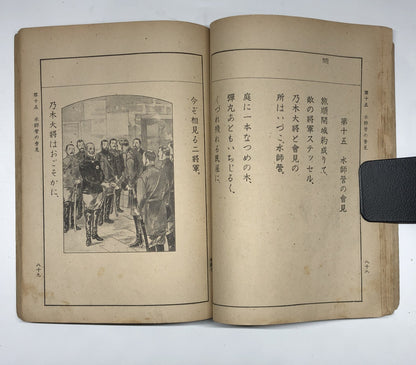 第十五 水師營の會見
八十八
第十五 水師營の會見
旅順開城約成りて、
敵の將軍ステッセル
乃木大將と會見の
所はいづこ、水師營。
庭に一本なつめの木、
彈丸あともいちじるく、
くづれ殘れる民屋に、
今ぞ相見る二將軍。
乃木大將はおごそかに、
第十五 水師營の會見
八十九